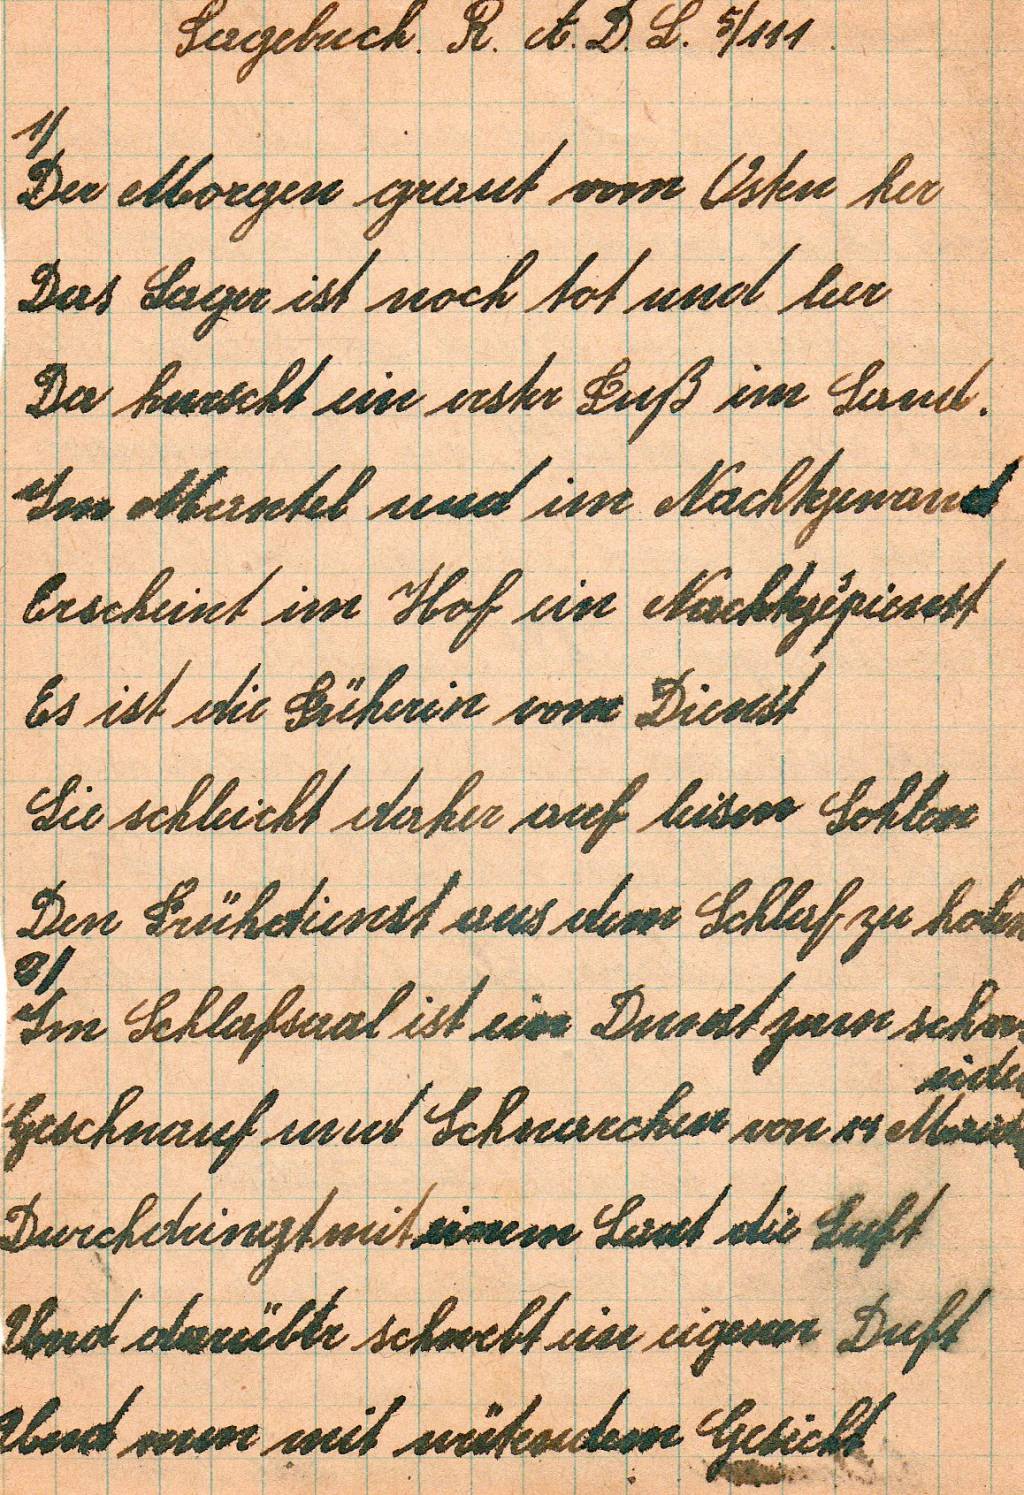 Tagebuch. R. A. D. L. 5/111.
1/
Der Morgen graut vom Osten her
Das Lager ist noch tot und leer
Da huscht ein erster Fuß im Sand.
Im Mantel und im Nachtgewand
Erscheint im Hof ein
Es ist die Früherin vom Dienst
Sie schleicht daher auf leisen Sohlen
Den Frühdienst aus dem Schlaf zu holen
2/
Im Schlafsaal ist ein Dunst zum schn
eiden
Geschnauf und Schnarchen von 14
Durchdringt mit einem Laut die Luft
Und darüber schwebt ein eigener Duft
Und nun mit wütendem Gesicht